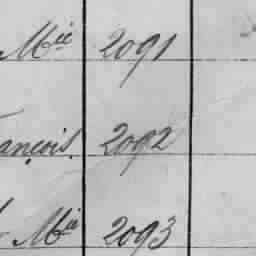 Mie 2091
ançois. 2092
Mie 2093